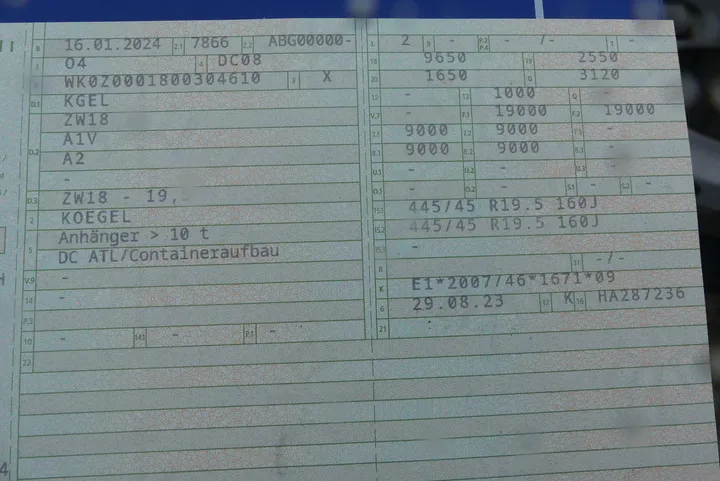 B 16.01.2024 2.1 7866 2.2 ABG00000-
J 04 4 DC08
E WK0Z0001800304610 3 X
D.1 KGEL
ZW18
D.2 A1V
A2
-
D.3 ZW18 - 19,
2 KOEGEL
5 Anhänger > 10 t
DC ATL/Containeraufbau
V.9 -
14 -
P.3
10 - 14.1 - P.1 -
22
L 2 9 - P.2 P.4 - /- T -
18 9650 19 2550
20 1650 G 3120
12 - 13 1000 Q -
V.7 - F.1 19000 F.2 19000
7.1 9000 7.2 9000 7.3 -
8.1 9000 8.2 9000 8.3 -
U.1 - U.2 - U.3 -
O.1 - O.2 - S.1 - S.2 -
15.1 445/45 R19.5 160J
15.2 445/45 R19.5 160J
15.3 -
R 11 -/-
K E1*2007/46*1671*09
6 29.08.23 17 K 16 HA287236
21
4